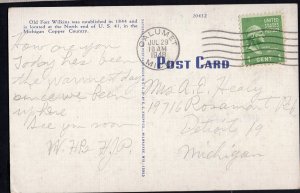 Old Fort Wilkins was established in 1844 and
is located at the North end of U. S. 41, in the
Michigan Copper Country.
20612
CALUMET
JUL 29
11 AM
1948
MICH.
1 CENT
POST CARD
How are you
Today has been
the warmest day
since we've been up
here
See you soon
Mrs. A. E. Healy
19716 Rosemont Rd
Detroit 19
Michigan